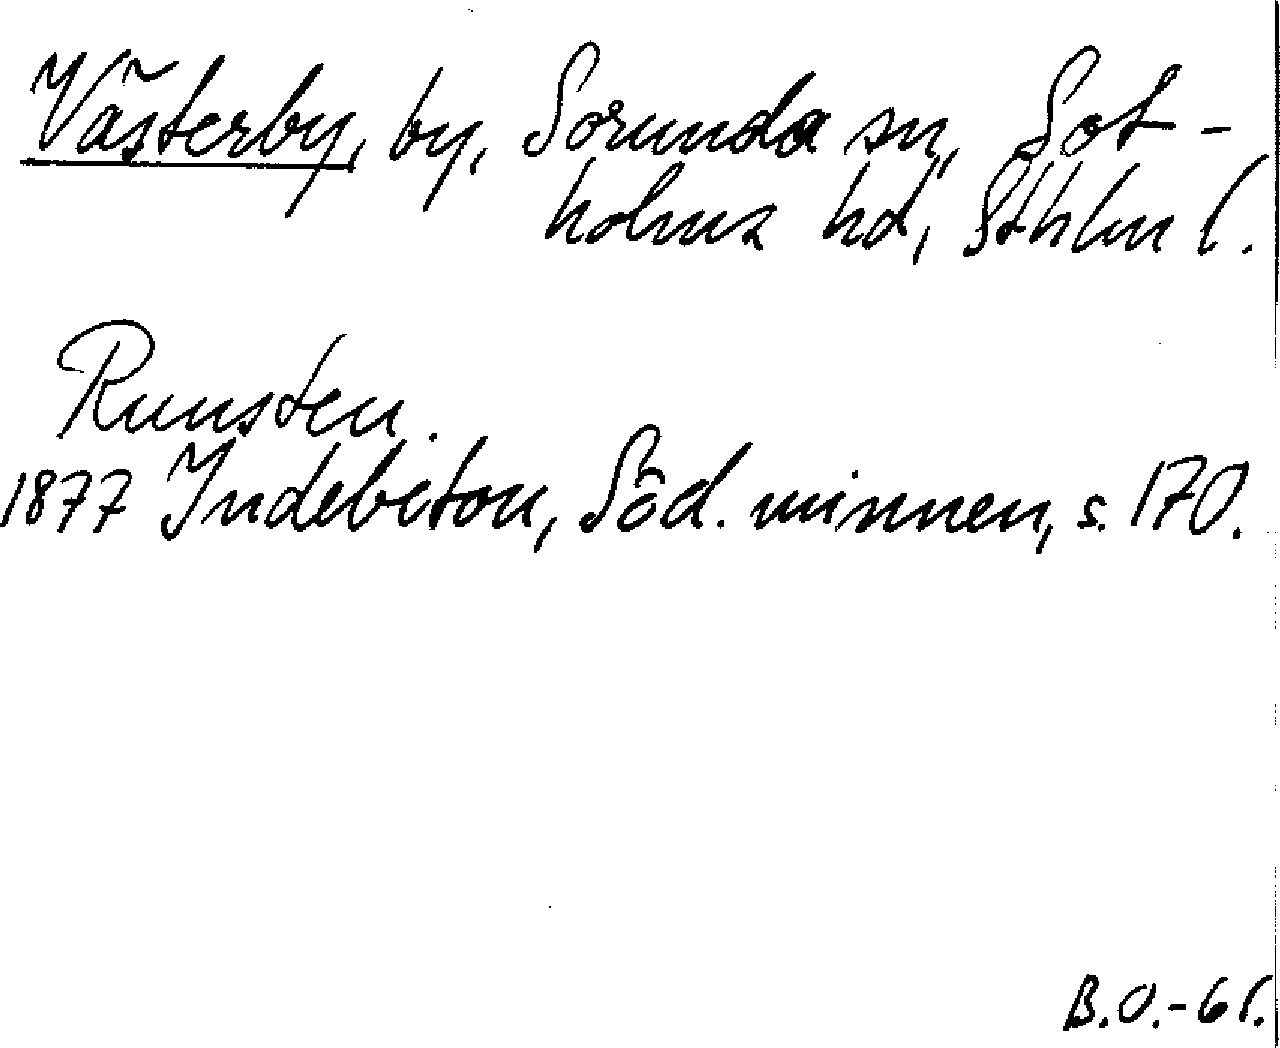 Västerby, by, Sorunda sn, Sot-
holms hd, Sthlm l.
Runsten.
1877 Indebetou, Söd. minnen, s. 170.
B.O.-61.